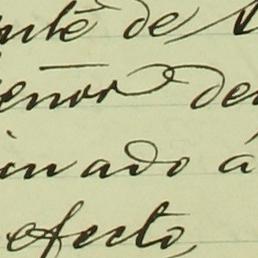 nte de
eñor de
inado á
efecto